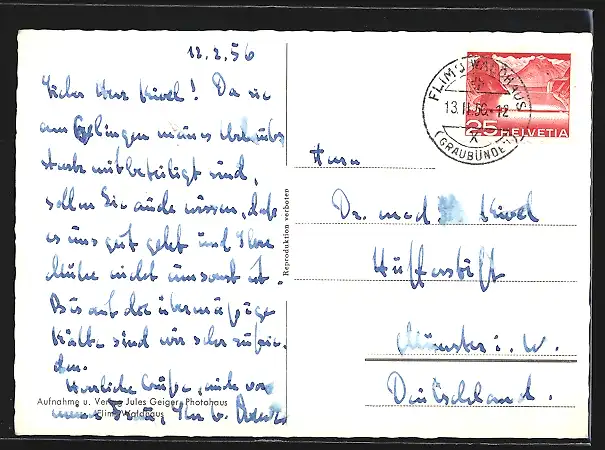 12.2.56
Lieber Herr Kivel! Da sie
am Gelingen meines Urlaubs
stark mitbeteiligt sind,
sollen Sie auch wissen, daß
es uns gut geht und Ihre
Mühe nicht umsonst ist.
Bis auf die übermäßige
Kälte sind wir sehr zufrie-
den.
Herzliche Grüße, auch von
meiner Frau, Ihr
Aufnahme u. Verlag Jules Geiger, Photohaus
Flims-Waldhaus
Reproduktion verboten
FLIMS WALDHAUS
13.II.56.-12
(GRAUBÜNDEN)
25 HELVETIA
Herrn
Dr. med. Kivel
Hüfferstift
Münster i. W.
Deutschland.